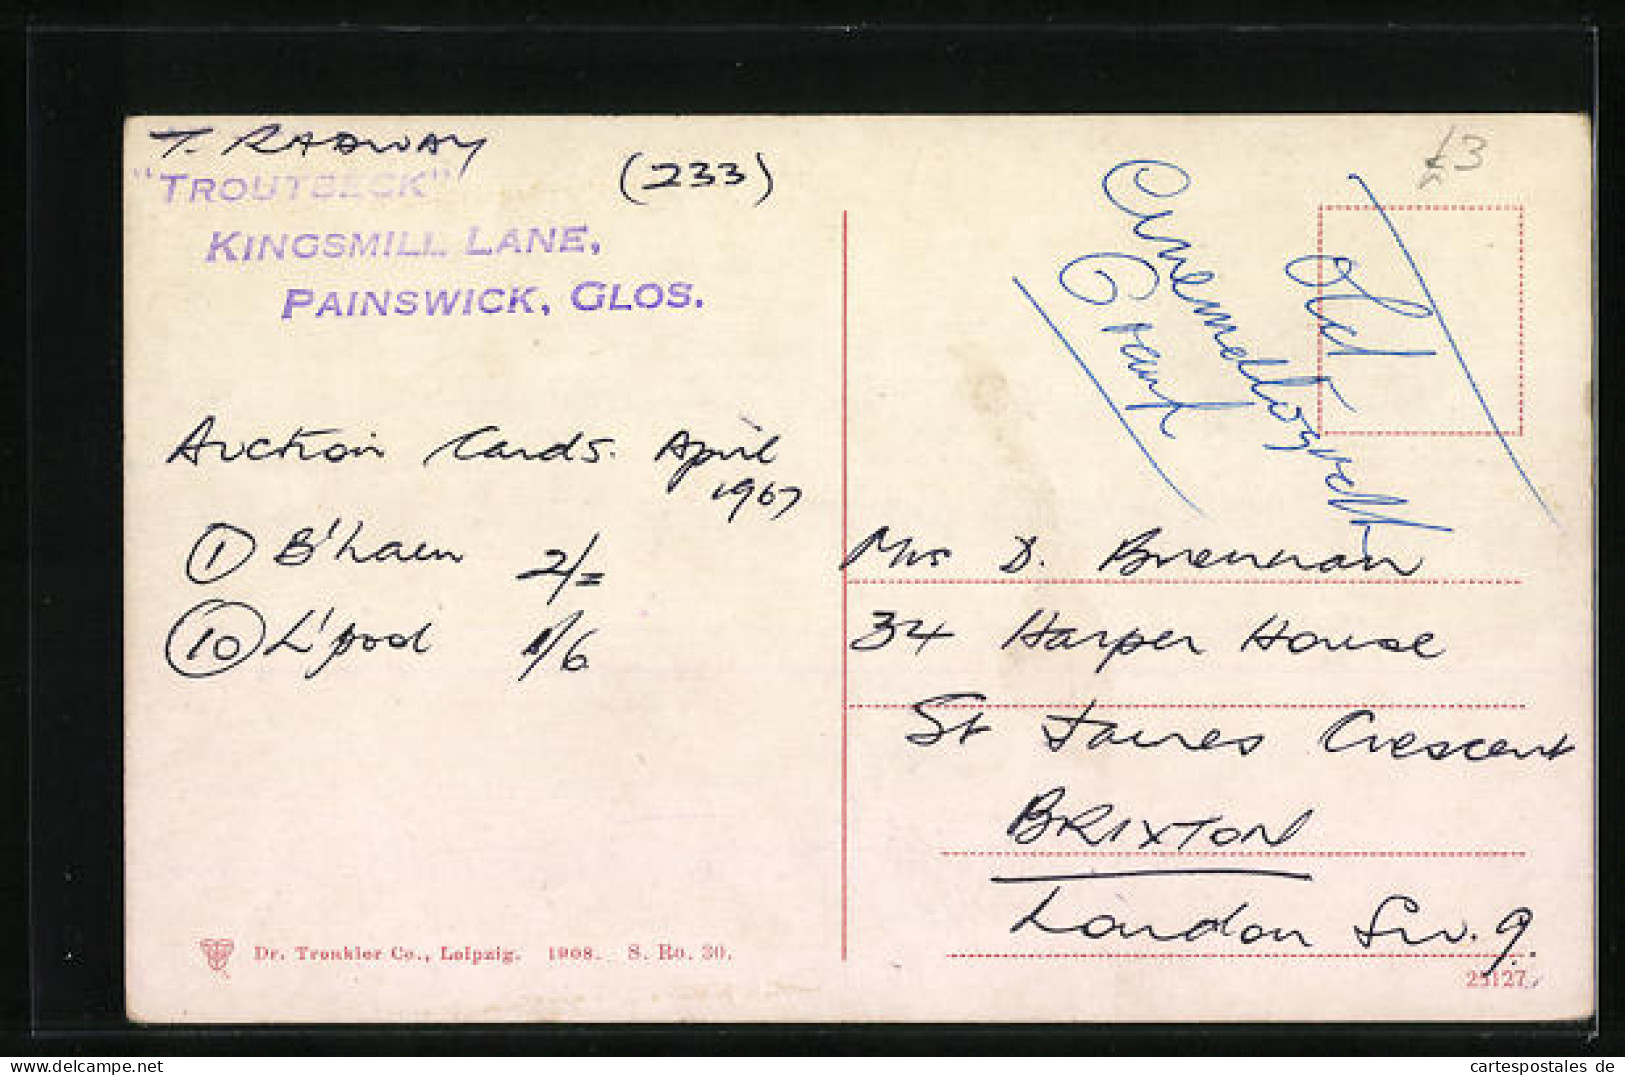 T. RADWAY
"TROUTBECK"
KINGSMILL LANE,
PAINSWICK, GLOS.
(233)
Auction Cards. April
1967
① B'ham 2/=
⑩ L'pool 1/6
Dr. Trenkler Co., Leipzig. 1908. S. Ro. 30.
£3
old
Mrs D. Brennan
34 Harper House
St James Crescent
BRIXTON
London S.W. 9.
25127
cartespostales de